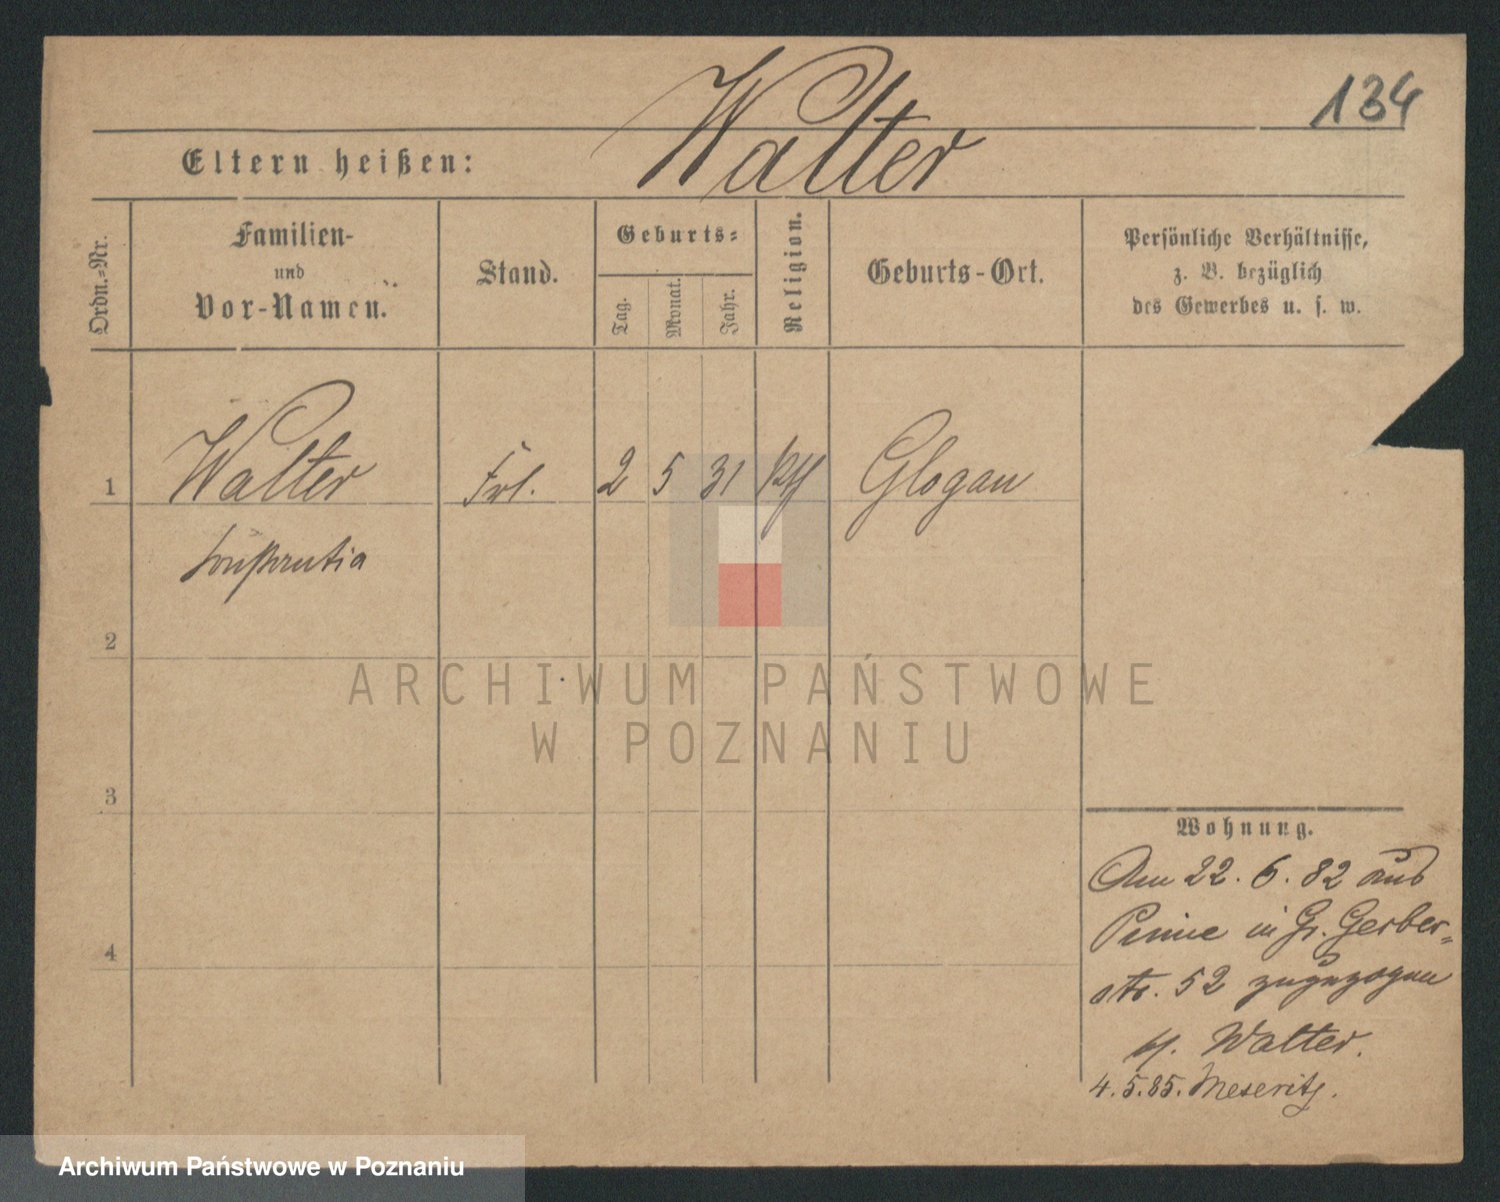 Walter
134
Eltern heißen:
Ordn.-Nr.
Familien-
und
Vor-Namen.
Stand.
Geburts-
Tag.
Monat.
Jahr.
Religion.
Geburts-Ort.
Persönliche Verhältnisse,
z. B. bezüglich
des Gewerbes u. s. w.
1 Walter Frl. 2 5 31 kth Glogau
Konstantia
2
3
4
ARCHIWUM PAŃSTWOWE
W POZNANIU
Wohnung.
Am 22. 6. 82 aus
Pinne in Gr. Gerber-
str. 52 zugezogen
Walter.
4. 5. 85. Meseritz.
Archiwum Państwowe w Poznaniu